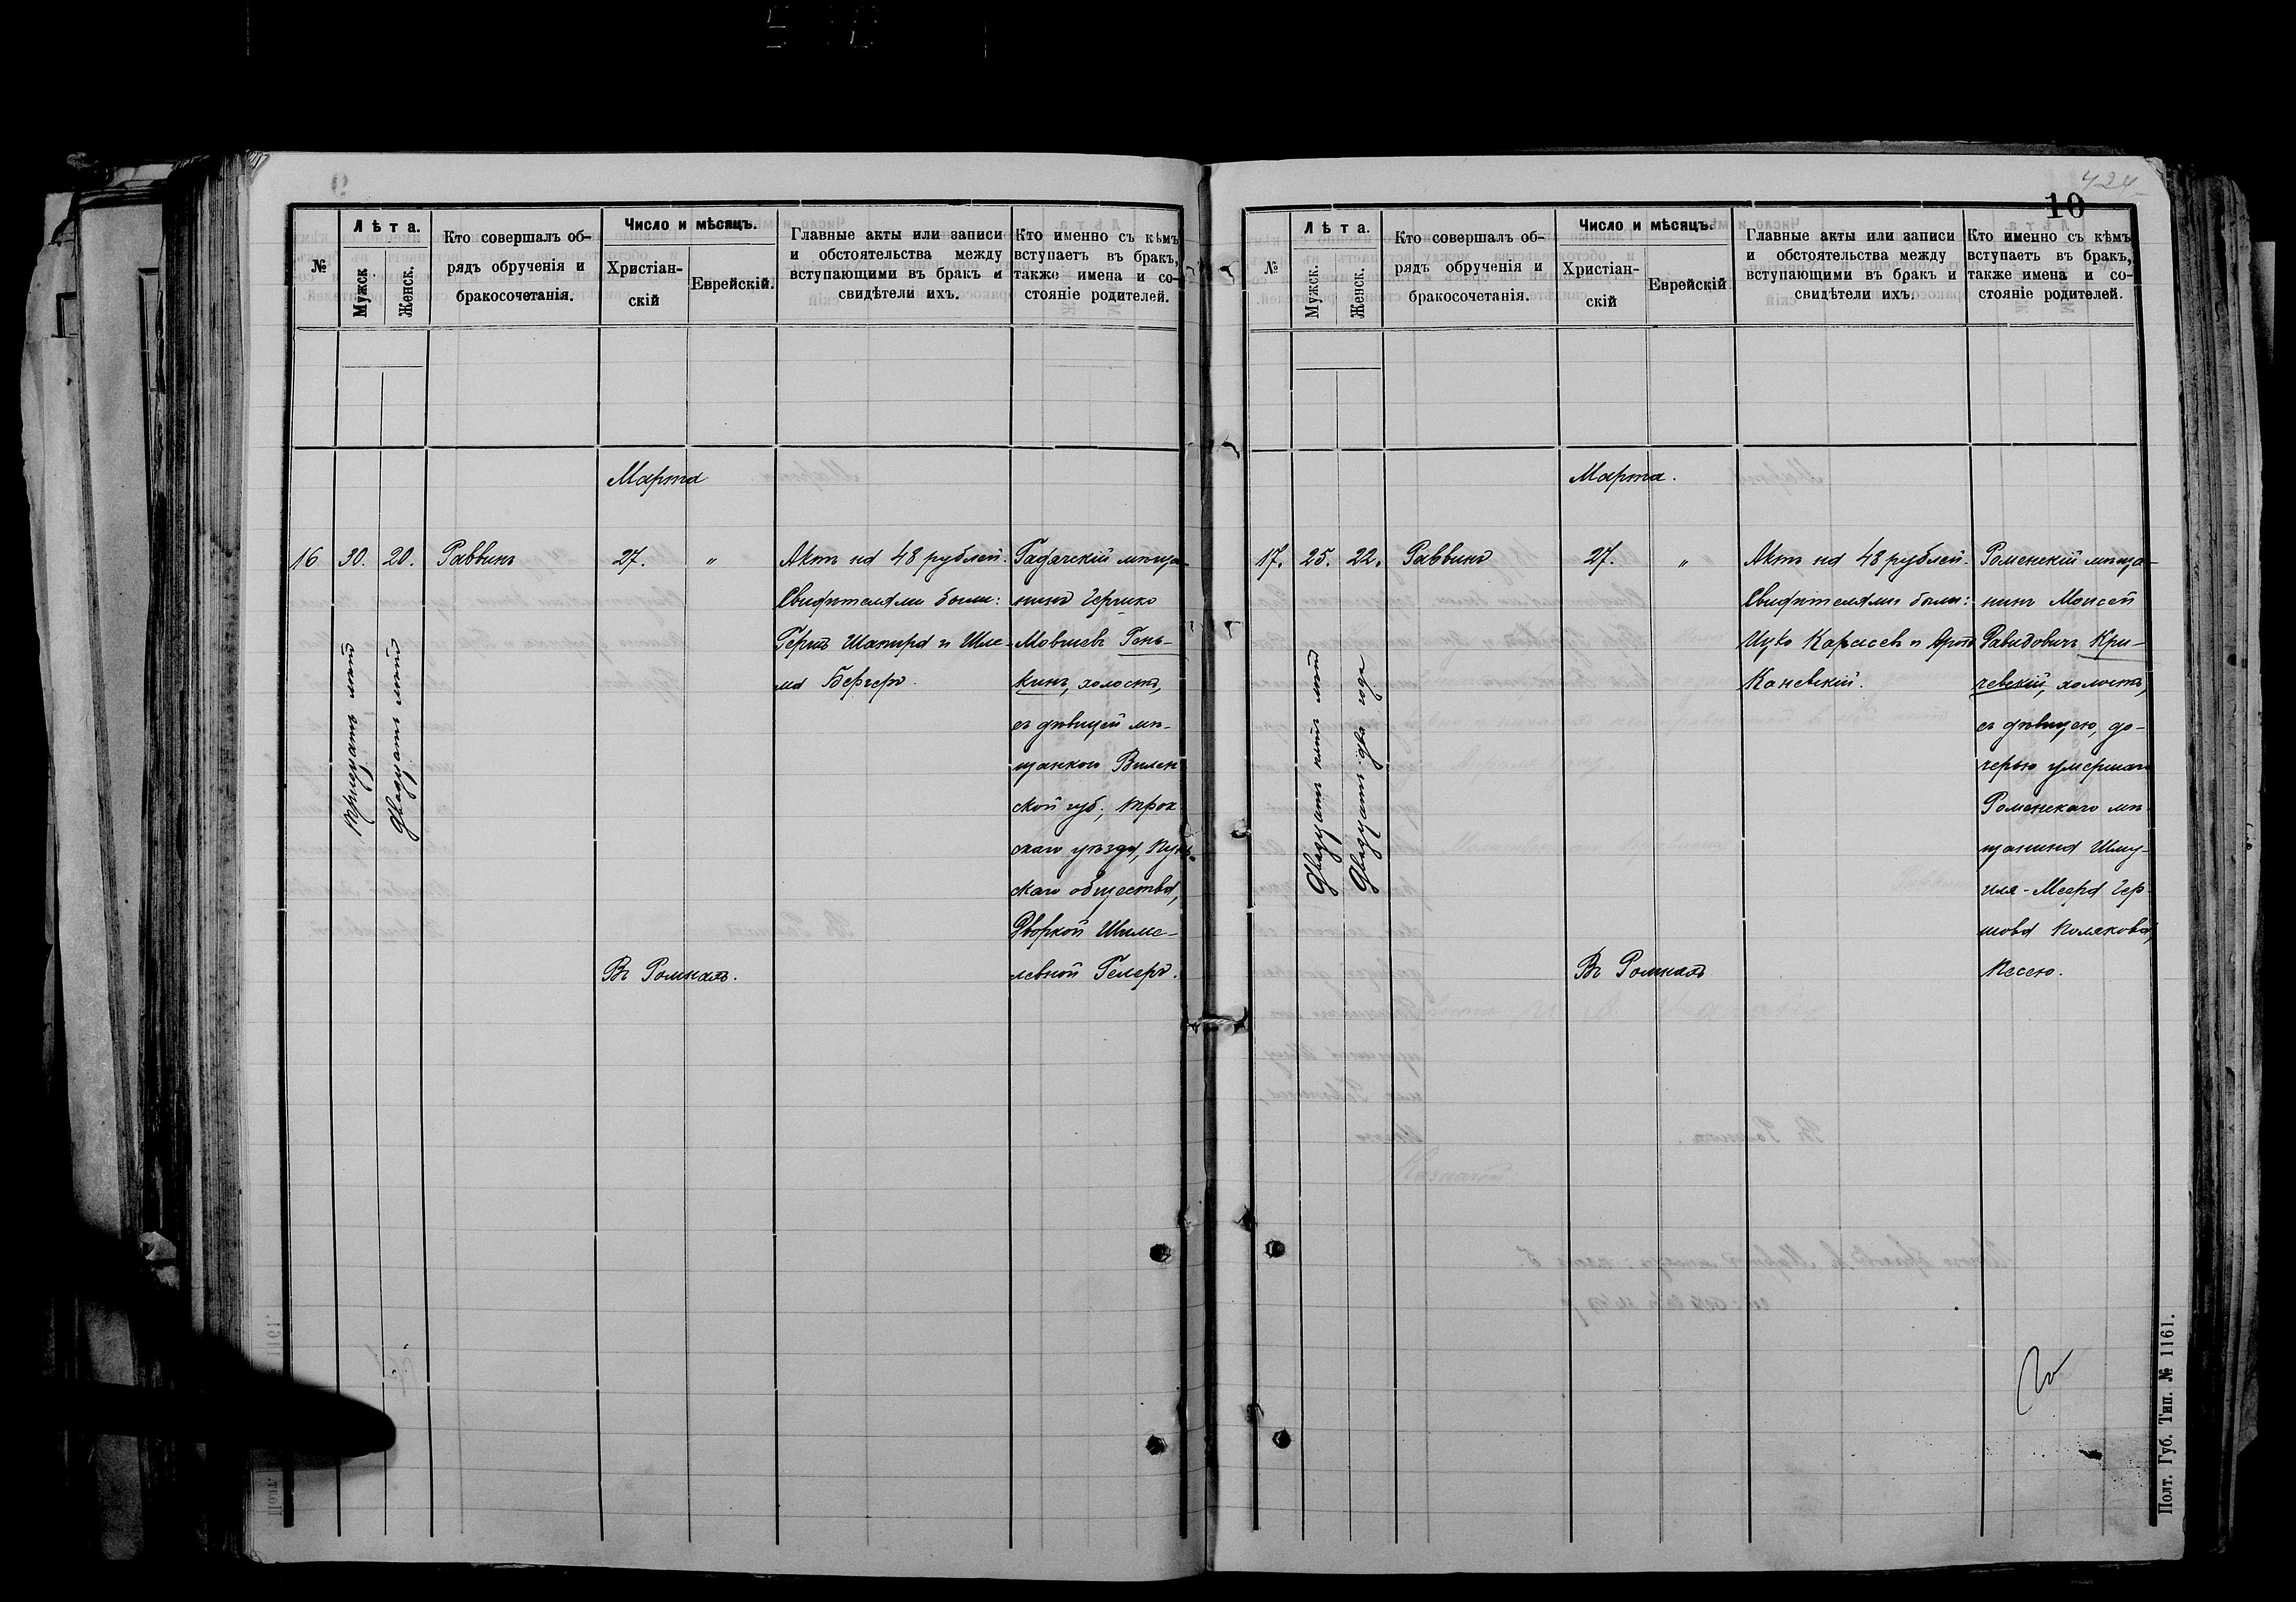 №
Лѣта.
Мужск.
Женск.
Кто совершалъ об-
рядъ обрученія и
бракосочетанія.
Число и мѣсяцъ.
Христіан-
скій
Еврейскій.
Главные акты или записи
и обстоятельства между
вступающими въ бракъ и
свидѣтели ихъ.
Кто именно съ кѣмъ
вступаетъ въ бракъ,
также имена и со-
стояніе родителей.
Марта
16
30.
Тридцать лѣтъ
20.
Двадцать лѣтъ
Раввинъ
27.
"
Въ Ромнахъ.
Актъ на 48 рублей.
Свидѣтелями были:
Гершъ Шапира и Шле-
ма Бергеръ.
Гадячскій мѣща-
нинъ Гершко
Мовшевъ Гень-
кинъ, холостъ,
съ дѣвицей мѣ-
щанкой Вилен
ской губ., Трок
скаго уѣзда,
скаго общества,
Дворкой Шмле-
левной Гелеръ.
424
10
№
Лѣта.
Мужск.
Женск.
Кто совершалъ об-
рядъ обрученія и
бракосочетанія.
Число и мѣсяцъ.
Христіан-
скій
Еврейскій
Главные акты или записи
и обстоятельства между
вступающими въ бракъ и
свидѣтели ихъ.
Кто именно съ кѣмъ
вступаетъ въ бракъ,
также имена и со-
стояніе родителей.
Марта.
17.
25.
Двадцать пять лѣтъ
22.
Двадцать два года
Раввинъ
27.
"
Въ Ромнахъ
Актъ на 48 рублей.
Свидѣтелями были:
Ицко Карасевъ и Аронъ
Каневскій.
Роменскій мѣща-
нинъ Моисей
Давидовичъ Кри-
чевскій, холостъ,
съ дѣвицею, до-
черью умершаго
Роменскаго мѣ-
щанина Шму-
иля-Меера Гер-
шова Полякова,
Песею.
Полт. Губ. Тип. № 1161.